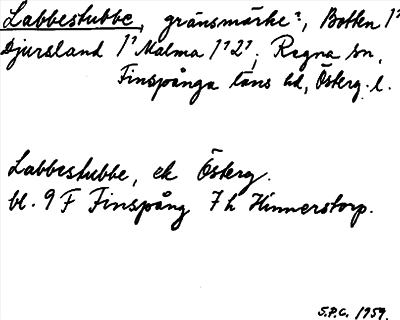 Labbestubbe, gränsmärke?, Botten 1?
Djursland 1? Malma 1? 2?; Regna sn,
Finspånga läns hd, Österg. l.
Labbestubbe, ek Österg.
bl. 9 F Finspång 7 h Hinnerstorp.
S.P.G. 1959.